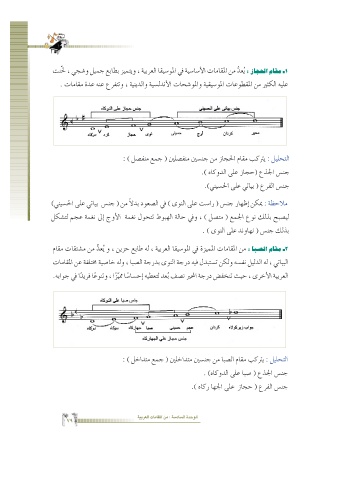 ١- مقام الحجاز : يُعدُّ من المقامات الأساسية في الموسيقا العربية ، ويتميز بطابع جميل وشجي ، لُحّنت
عليه الكثير من المقطوعات الموسيقية والموشحات الأندلسية والدينية ، وتتفرع عنه عدة مقامات .
جنس بياتي على الحسيني
جنس حجاز على الدوكاه
محير كردان أوج حسيني نوى حجاز كرد دوكاه
التحليل : يتركب مقام الحجاز من جنسين منفصلين ( جمع منفصل ) :
جنس الجذع (حجاز على الدوكاه ).
جنس الفرع ( بياتي على الحسيني).
ملاحظة : يمكن إظهار جنس ( راست على النوى ) في الصعود بدلاً من ( جنس بياتي على الحسيني)
ليصبح بذلك نوع الجمع ( متصل ) ، وفي حالة الهبوط تتحول نغمة الأوج إلى نغمة عجم لتشكل
بذلك جنس ( نهاوند على النوى ) .
٢- مقام الصبا : من المقامات المميزة في الموسيقا العربية ، له طابع حزين ، و يُعدُّ من مشتقات مقام
البياتي ، له الدليل نفسه ولكن تستبدل فيه درجة النوى بدرجة الصبا ، وله خاصية مختلفة عن المقامات
العربية الأخرى ، حيث تنخفض درجة المحير نصف بُعد لتعطيه إحساسًا مميَّزًا ، وتنوعًا فريدًا في جوابه.
جنس صبا على الدوكاه
جواب زيركولاه كردان عجم حسيني صبا جهاركاه سيكاه دوكاه
جنس حجاز على الجهاركاه
التحليل : يتركب مقام الصبا من جنسين متداخلين ( جمع متداخل ) :
جنس الجذع ( صبا على الدوكاه) .
جنس الفرع ( حجاز على الجهاركاه ).